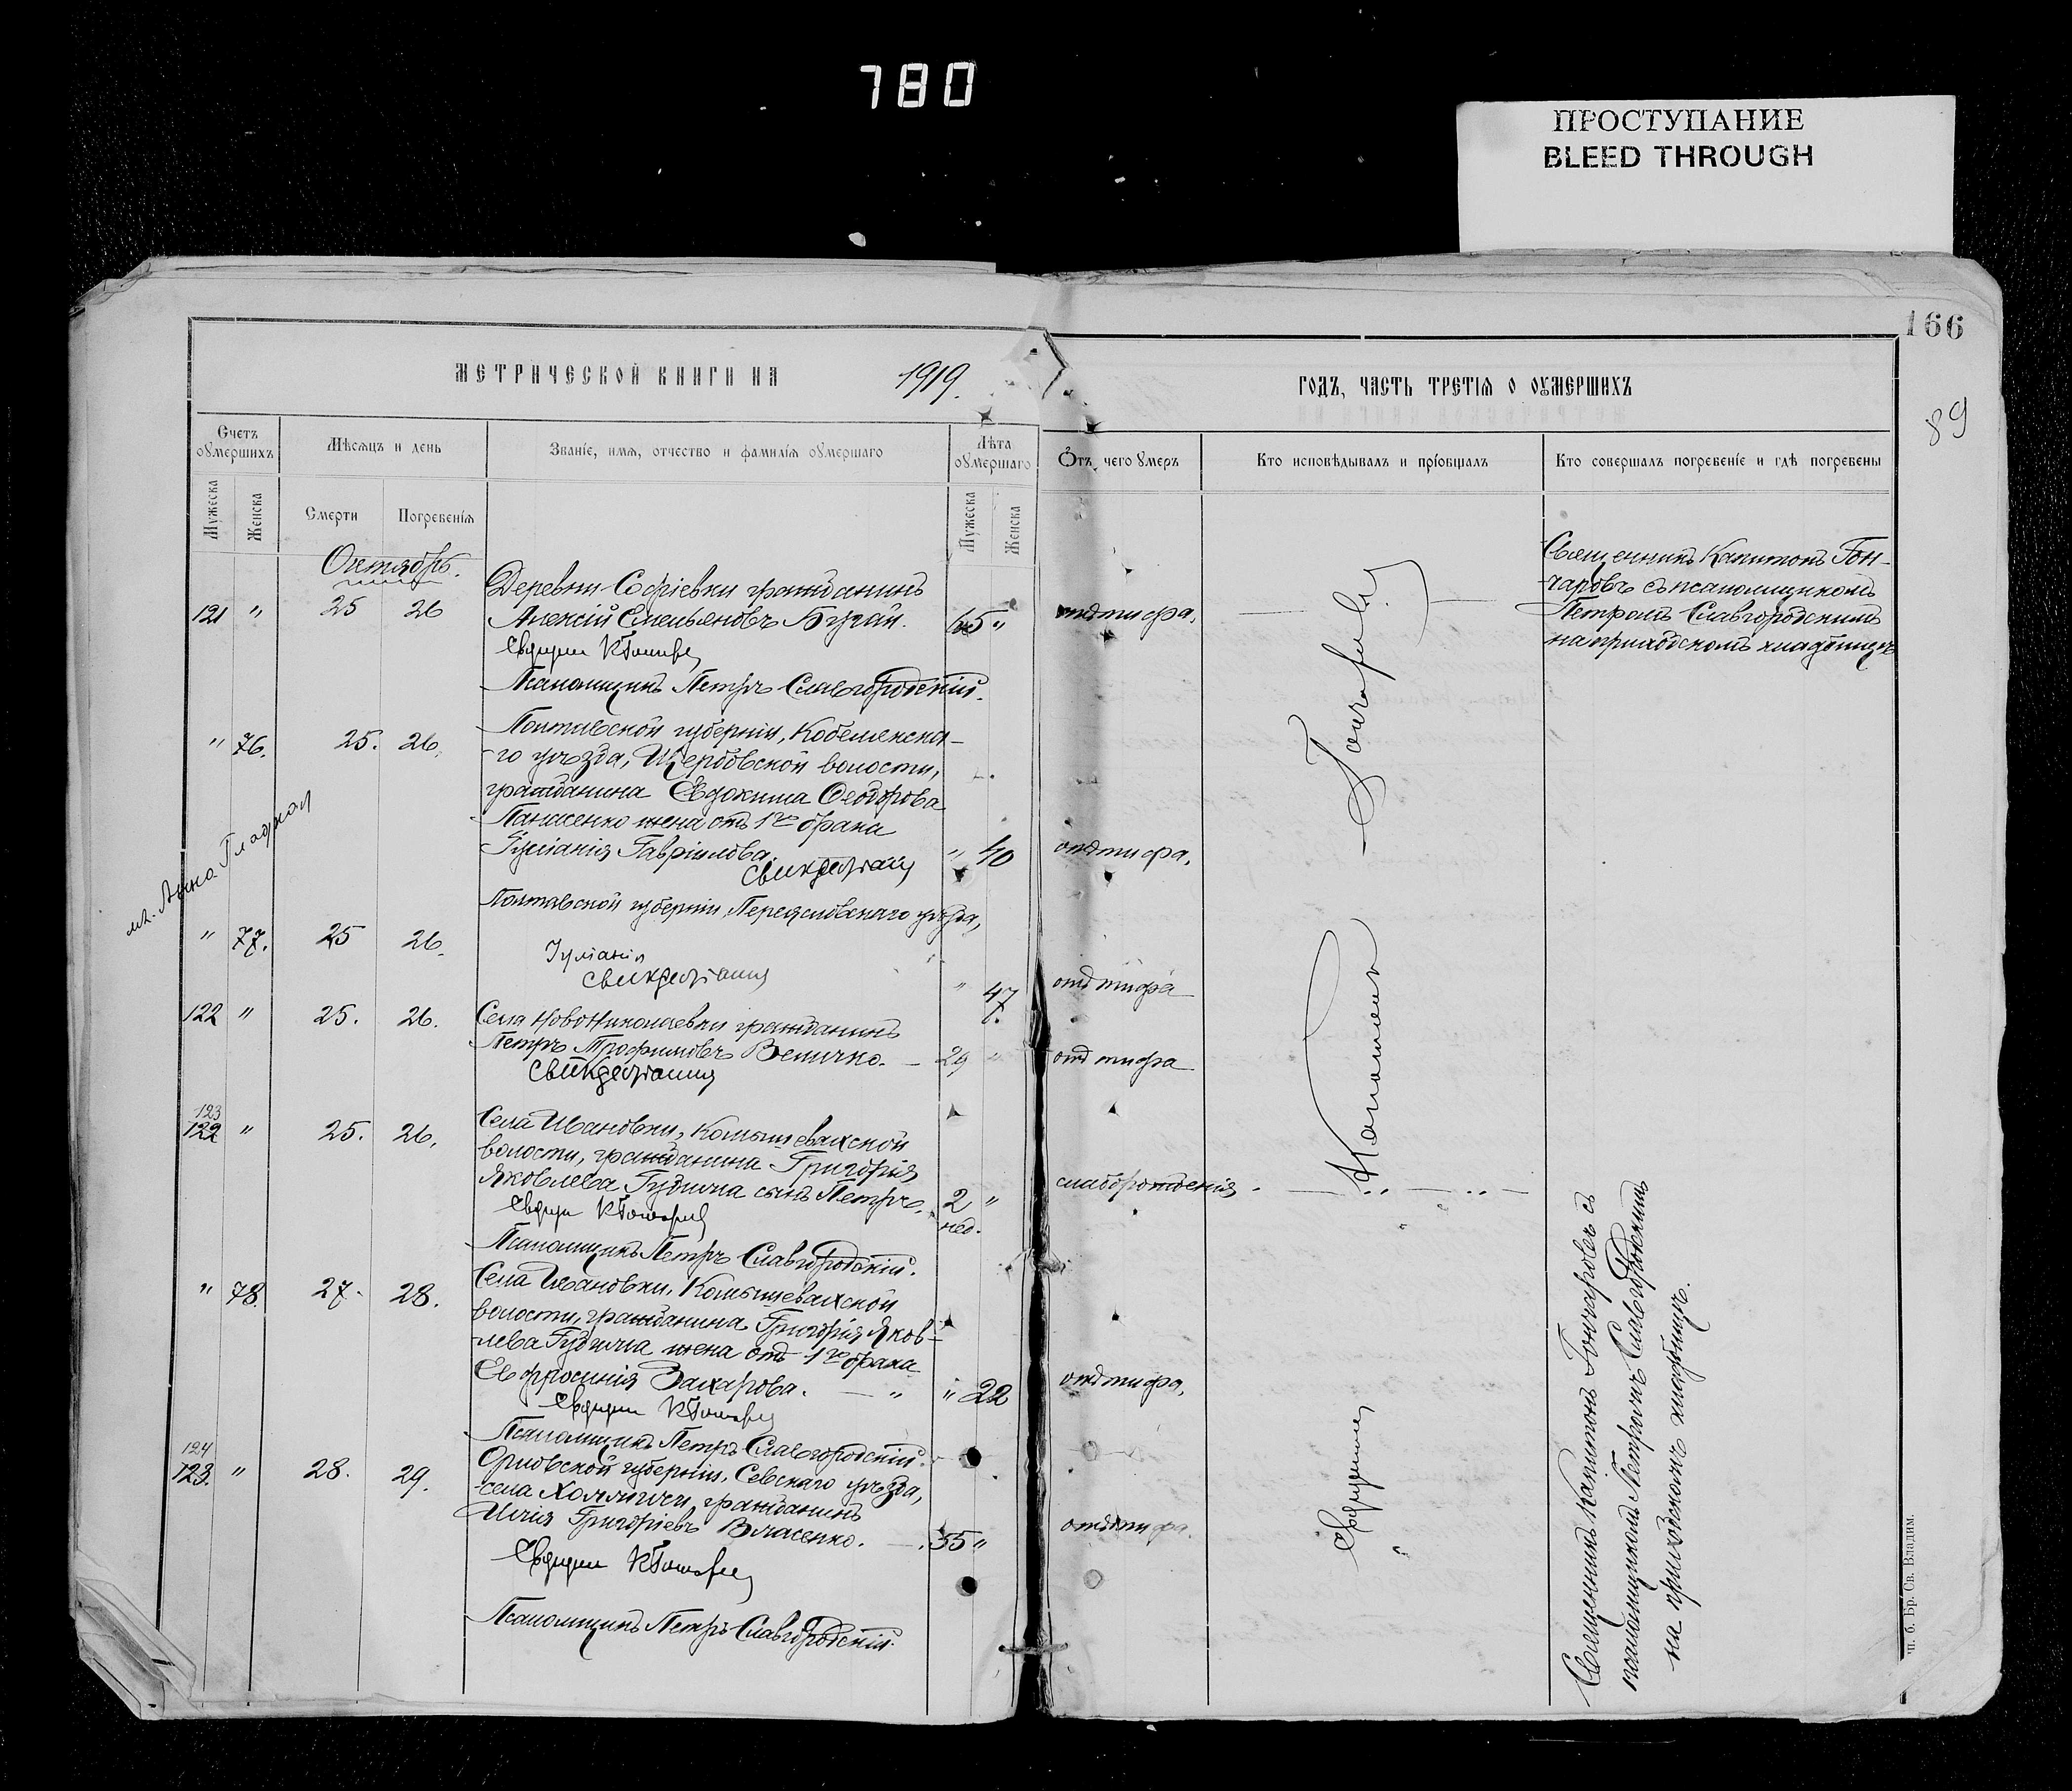 780
ПРОСТУПАНИЕ
BLEED THROUGH
166
89
МЕТРИЧЕСКОЙ КНИГИ НА 1919.
ГОДЪ, ЧАСТЬ ТРЕТІѦ О ОУМЕРШИХЪ
Счетъ оумершихъ
Мѣсѧцъ и день
Званіе, имѧ, отчество и фамиліѧ оумершаго
Лѣта оумершаго
Отъ чего умеръ
Кто исповѣдывалъ и пріобщалъ
Кто совершалъ погребеніе и гдѣ погребены
Мужеска
Женска
Смерти
Погребеніѧ
Мужеска
Женска
Октябрь.
Деревни Софіевки гражданинъ
121 " 25 26 Алексій Емельяновъ Бугай. 65 " отъ тифа.
Священникъ Капитонъ Гон-
чаровъ съ псаломщикомъ
Петромъ Славгородскимъ
на приходскомъ кладбищѣ
Псаломщикъ Петръ Славгородскій.
" 76. 25. 26. Полтавской губерніи, Кобелякска-
го уѣзда, Щербовской волости,
гражданина Евдокима Ѳеодорова
Панасенко жена отъ 1го брака
Іуліанія Гавріилова. " 40 отъ тифа.
мл. Анна Гладкая
Полтавской губерніи, Переяславскаго уѣзда,
" 77. 25 26.
Іуліанія
" 47 отъ тифа
122 " 25. 26. Села Новониколаевки гражданинъ
Петръ Трофимовъ Величко. — 29 " отъ тифа
123
122 " 25. 26. Села Ивановки, Комышевахской
волости, гражданина Григорія
Яковлева Гудима сынъ Петръ. 2 " слаборожденія.
нед.
Псаломщикъ Петръ Славгородскій.
" 78. 27. 28. Села Ивановки, Комышевахской
волости, гражданина Григорія Яков-
лева Гудима жена отъ 1го брака
Евфросинія Захарова. — " " 22 отъ тифа.
Псаломщикъ Петръ Славгородскій.
124
123. " 28. 29. Орловской губерніи, Севскаго уѣзда,
села гражданинъ
Илія Григоріевъ Власенко. — 55 " отъ тифа.
Псаломщикъ Петръ Славгородскій.
Капитонъ Гончаровъ
Священникъ Капитонъ Гончаровъ съ
псаломщикомъ Петромъ Славгородскимъ
на приходскомъ кладбищѣ.
Бр. Св. Владим.